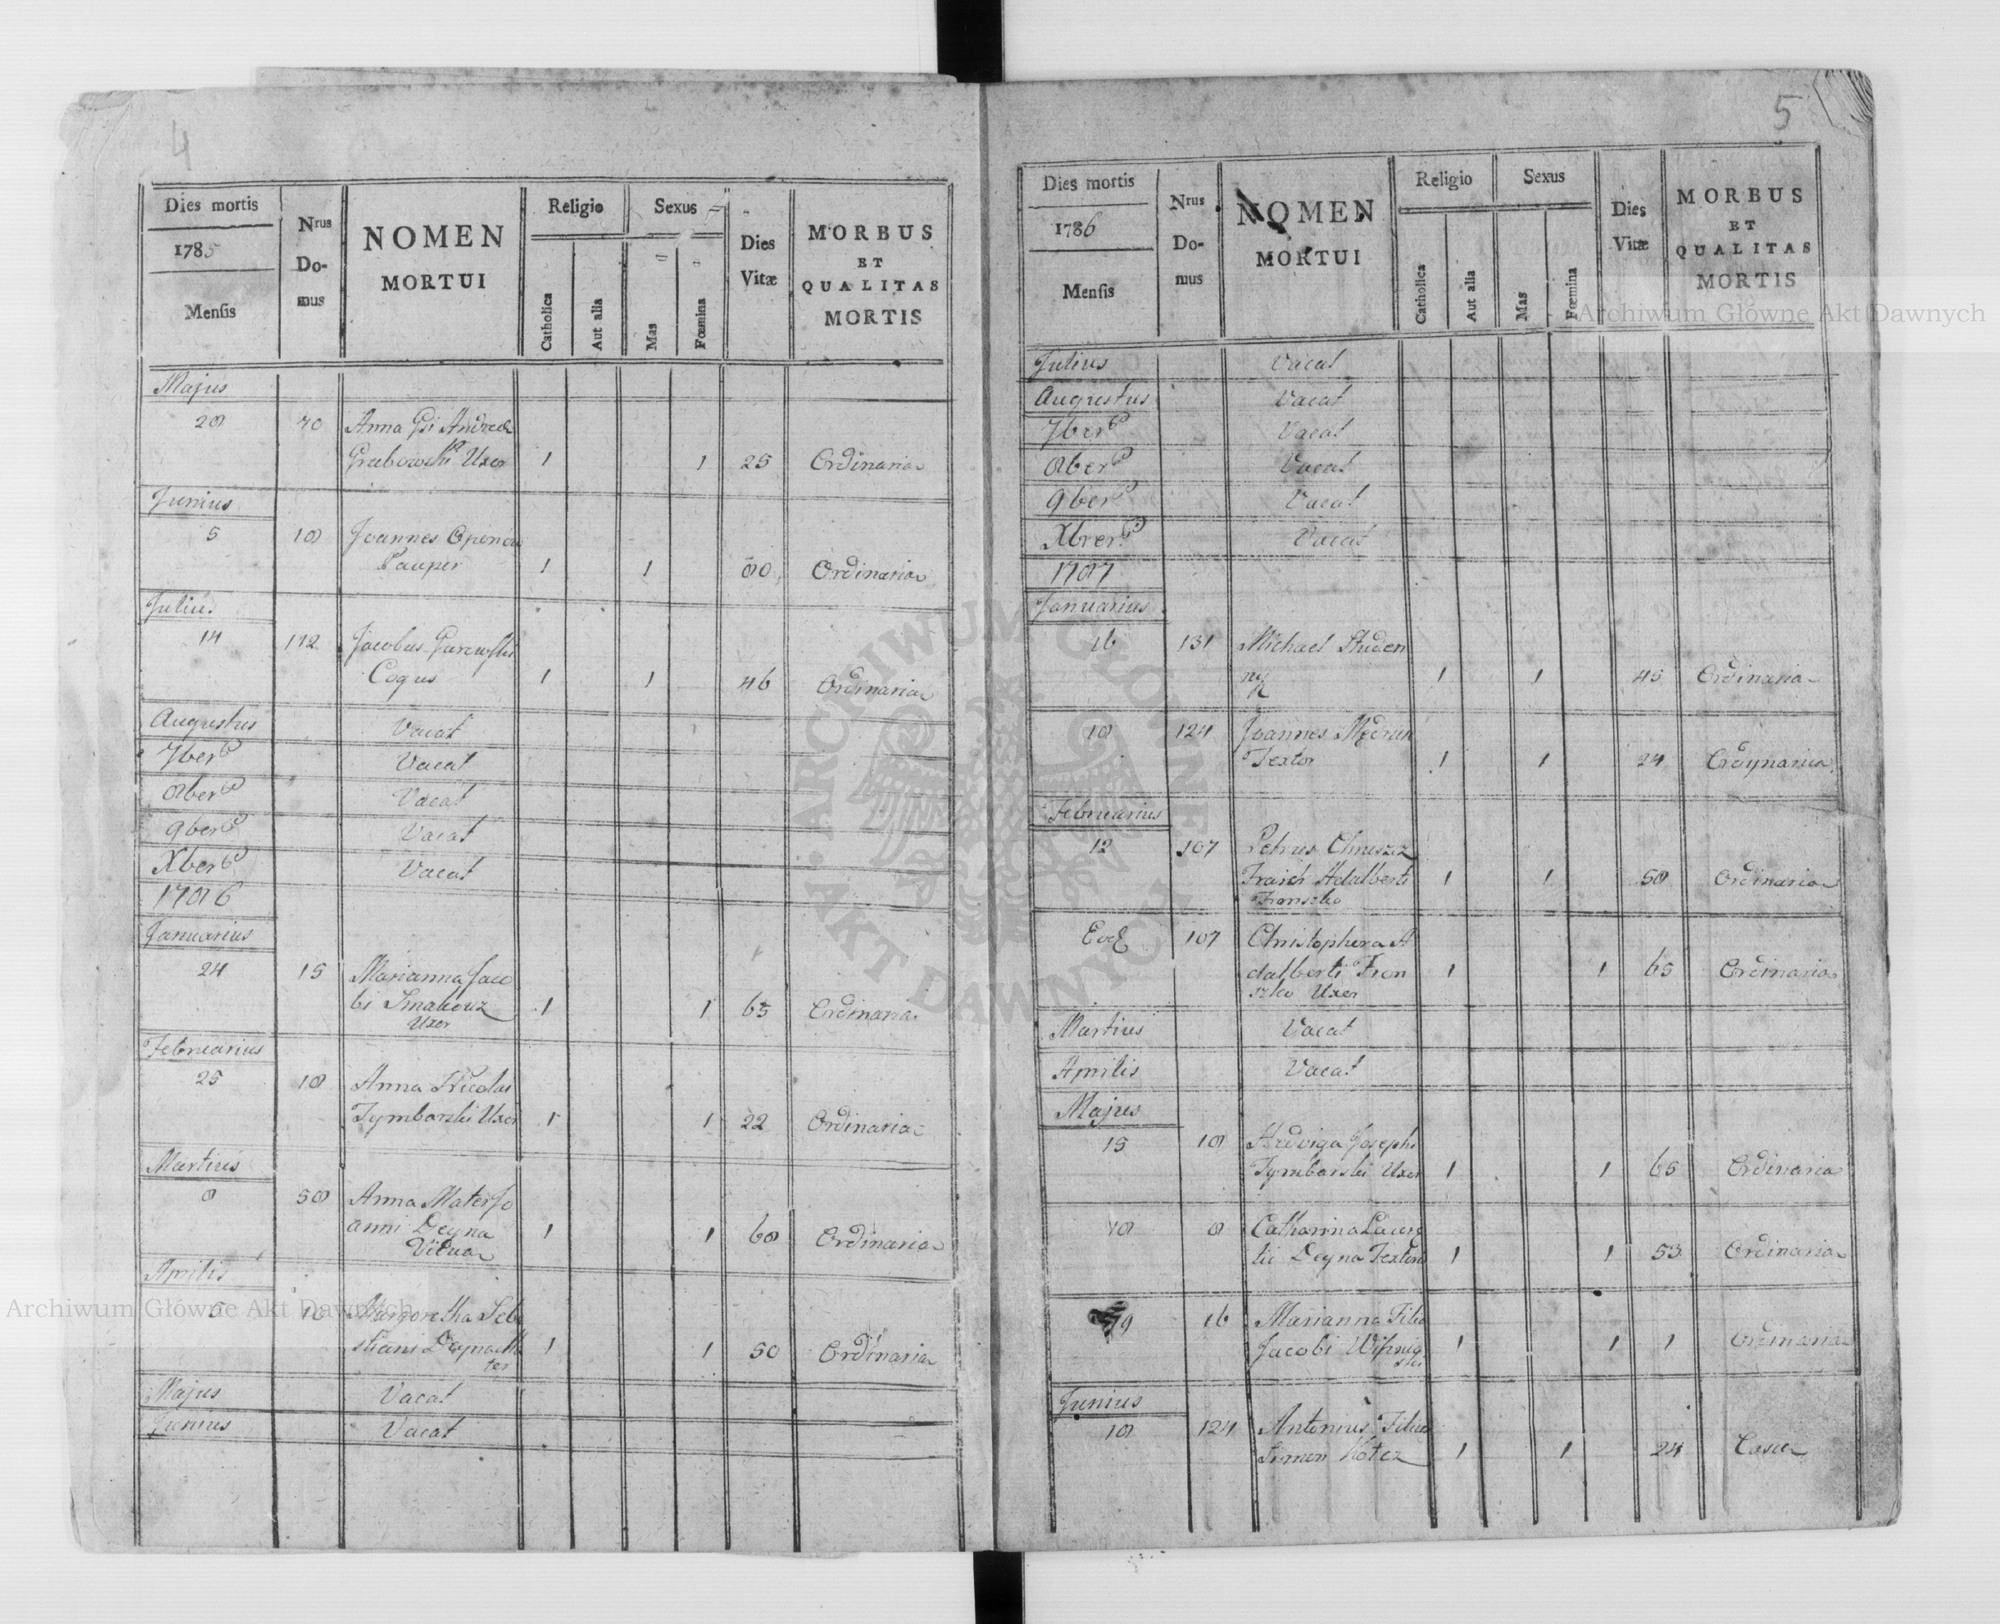 4
Dies mortis
1785
Mensis
Nrus Do-mus
NOMEN
MORTUI
Religio
Catholica
Aut alia
Sexus
Mas
Fœmina
Dies Vitæ
MORBUS
ET
QUALITAS
MORTIS
Majus
28 70 Anna
Uxor 1 1 25 Ordinaria
Junius
5 18 Joannes
Pauper 1 1 80 Ordinaria
Julius
14 112 Jacobus
Coqus 1 1 46 Ordinaria
Augustus Vacat
7ber Vacat
8ber Vacat
9ber Vacat
Xber Vacat
1786
Januarius
24 15 Marianna Jaco
bi 1 1 65 Ordinaria
Uxor
Februarius
25 18 Anna Nicolai
Tymbarski Uxor 1 1 22 Ordinaria
Martius
8 58 Anna Mater Jo
anni Deyna 1 1 68 Ordinaria
Vidua
Aprilis
5 18 Margaretha Seba
stiani Deyna Ma 1 1 50 Ordinaria
ter
Majus Vacat
Junius Vacat
5
Dies mortis
1786
Mensis
Nrus Do-mus
NOMEN
MORTUI
Religio
Catholica
Aut alia
Sexus
Mas
Fœmina
Dies Vitæ
MORBUS
ET
QUALITAS
MORTIS
Julius Vacat
Augustus Vacat
7ber Vacat
8ber Vacat
9ber Vacat
Xbrer Vacat
1787
Januarius
16 131 Michael Studen
ny 1 1 45 Ordinaria
18 124 Joannes
Textor 1 1 24 Ordynaria
Februarius
12 107 Petrus
Adalberti 1 1 58 Ordinaria
Fronszko
107 Christophora A
dalberti Fron 1 1 65 Ordinaria
szko Uxor
Martius Vacat
Aprilis Vacat
Majus
15 18 Hedviga Josephi
Tymbarski Uxor 1 1 65 Ordinaria
18 8 Catharina Lauren
tii Deyna 1 1 53 Ordinaria
19 16 Marianna Filia
Jacobi 1 1 1 Ordinaria
Junius
18 124 Antonius Filius
Simon 1 1 24 Casu
Archiwum Główne Akt Dawnych
Archiwum Główne Akt Dawnych
ARCHIWUM GŁÓWNE AKT DAWNYCH